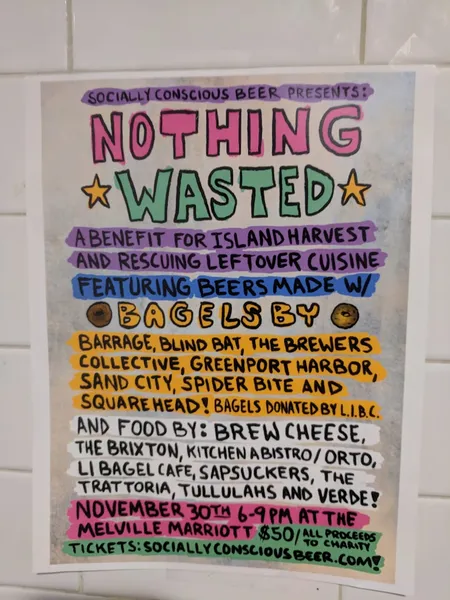 SOCIALLY CONSCIOUS BEER PRESENTS:
NOTHING
WASTED
A BENEFIT FOR ISLAND HARVEST
AND RESCUING LEFTOVER CUISINE
FEATURING BEERS MADE W/
BAGELS BY
BARRAGE, BLIND BAT, THE BREWERS
COLLECTIVE, GREENPORT HARBOR,
SAND CITY, SPIDER BITE AND
SQUAREHEAD! BAGELS DONATED BY L.I.B.C.
AND FOOD BY: BREW CHEESE,
THE BRIXTON, KITCHEN A BISTRO/ORTO,
LI BAGEL CAFE, SAPSUCKERS, THE
TRATTORIA, TULLULAHS AND VERDE!
NOVEMBER 30TH 6-9PM AT THE
MELVILLE MARRIOTT $50/ALL PROCEEDS TO CHARITY
TICKETS: SOCIALLYCONSCIOUSBEER.COM!